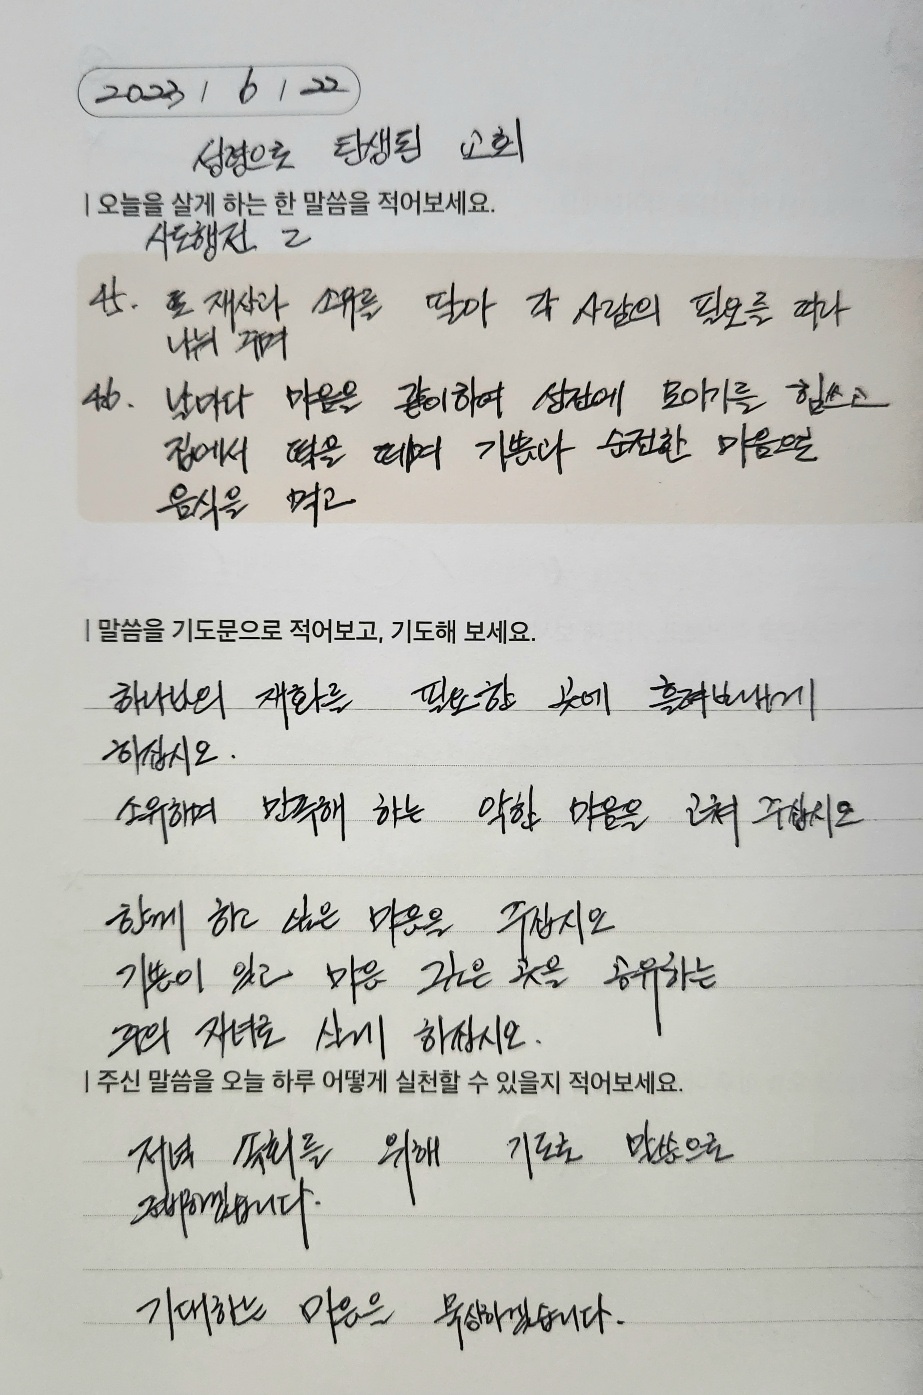 2023 / 6 / 22
성령으로 탄생된 교회
| 오늘을 살게 하는 한 말씀을 적어보세요.
사도행전 2
45. 또 재산과 소유를 팔아 각 사람의 필요를 따라
나눠 주며
46. 날마다 마음을 같이하여 성전에 모이기를 힘쓰고
집에서 떡을 떼며 기쁨과 순전한 마음으로
음식을 먹고
| 말씀을 기도문으로 적어보고, 기도해 보세요.
하나님의 재화를 필요한 곳에 흘려보내게
하십시오.
소유하며 만족해 하는 악한 마음을 고쳐 주십시오
함께 하고 싶은 마음을 주십시오
기쁨이 있고 마음 같은 곳을 공유하는
주의 자녀로 살게 하십시오.
| 주신 말씀을 오늘 하루 어떻게 실천할 수 있을지 적어보세요.
저녁 를 위해 기도로 말씀으로
준비하겠습니다.
기대하는 마음을 묵상하겠습니다.